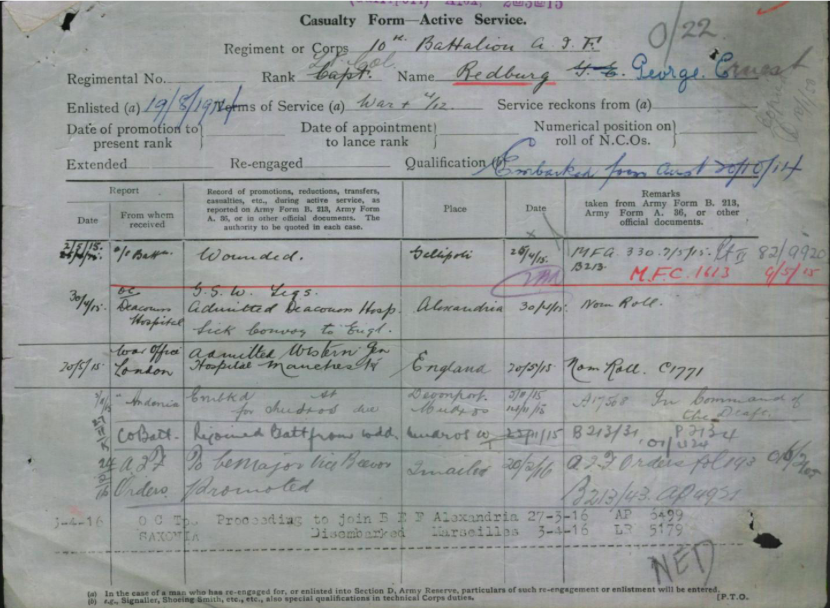 Casualty Form—Active Service.
0/22
Regiment or Corps 10th Battalion A. I. F.
Lt. Col.
Regimental No. Rank Capt. Name Redburg G. E. George Ernest
Enlisted (a) 19/8/1914 Terms of Service (a) War + 4/12. Service reckons from (a)
Date of promotion to present rank } Date of appointment to lance rank } Numerical position on roll of N.C.Os. }
Extended Re-engaged Qualification (b) Embarked from Aust 20/10/14
Report
Date
From whom received
Record of promotions, reductions, transfers, casualties, etc., during active service, as reported on Army Form B. 213, Army Form A. 36, or in other official documents. The authority to be quoted in each case.
Place
Date
Remarks
taken from Army Form B. 213, Army Form A. 36, or other official documents.
2/5/15. Wounded. Gallipoli /4/15. MFA. 330. 7/5/15. Pt II 82/9920
B213 M.F.C. 1613 9/5/15
30/4/15. OC Deacouns Hospital G.S.W. Legs.
Admitted Deacouns Hosp. Alexandria 30/4/15 Nom Roll.
Sick Convoy to Engl.
20/5/15 War Office London Admitted Western Gen
Hospital Manchester England 20/5/15 Nom Roll. C1771
Andania Embkd at Devonport
for Mudros Mudros A17568 In Command of
CO Batt. Rejoined Batt from Mudros /11/15 B213/31
A I F Orders To be Major Vice 20/2/16 A I F Orders
Promoted B213/43. AP 4951
3-4-16 O C Tps Proceeding to join B E F Alexandria 27-3-16 AP 5499
SAXONIA Disembarked Marseilles 3-4-16 LR 5179
NED
(a) In the case of a man who has re-engaged for, or enlisted into Section D, Army Reserve, particulars of such re-engagement or enlistment will be entered.
(b) e.g., Signaller, Shoeing Smith, etc., etc., also special qualifications in technical Corps duties. [P.T.O.